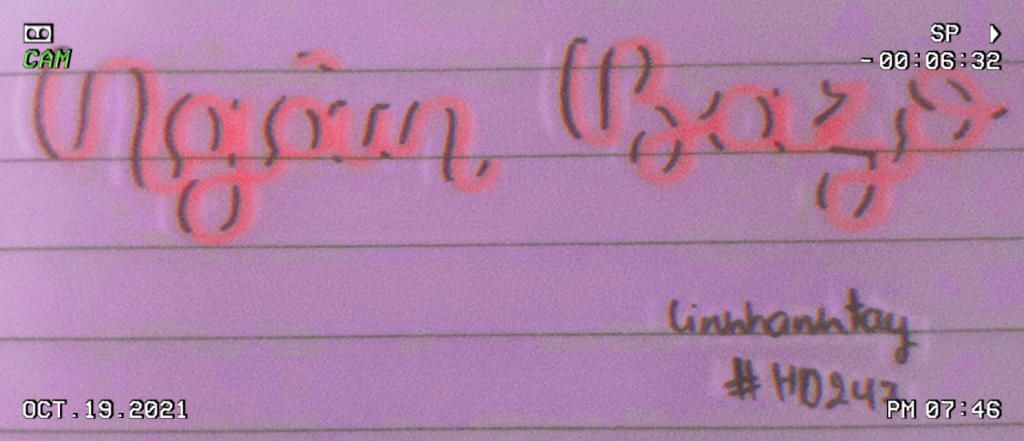 SP
CAM
-00:06:32
Ngân Bazơ
linhhanhtay
#HD247
OCT.19.2021 PM 07:46